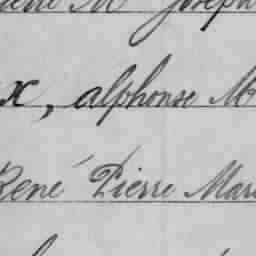 M Joseph
x, alphonse M
René Pierre Mari